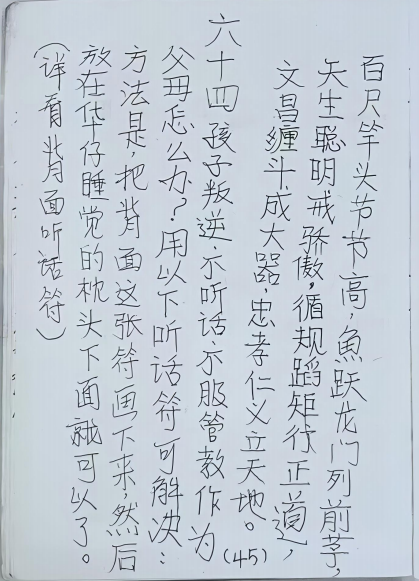 百尺竿头节节高，魚跃龙门列前茅，
天生聪明戒骄傲，循规蹈矩行正道，
文昌缠斗成大器 忠孝仁义立天地。(45)
六十四 孩子叛逆示听话示服管教作为
父母怎么办？用以下听话符可解决：
方法是，把背面这张符画下来，然后
放在华仔睡觉的枕头下面就可以了。
(详看背面听话符)